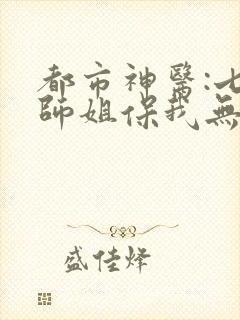 都市神醫:七
師姐保我無
盛佳烽